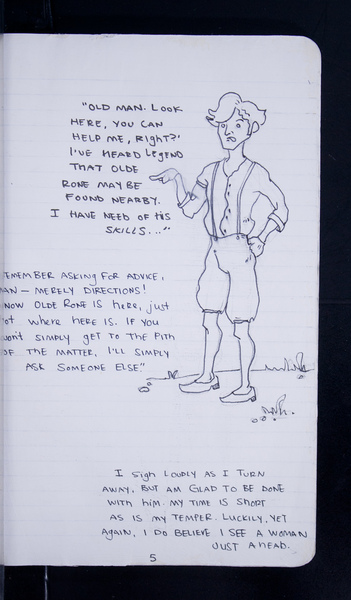 "OLD MAN. LOOK
HERE, YOU CAN
HELP ME, RIGHT?'
I'VE HEARD LEGEND
THAT OLDE
RONE MAY BE
FOUND NEARBY.
I HAVE NEED OF HIS
SKILLS..."
EMEMBER ASKING FOR ADVICE,
AN — MERELY DIRECTIONS!
NOW OLDE RONE IS HERE, JUST
OT WHERE HERE IS. IF YOU
WON'T SIMPLY GET TO THE PITH
OF THE MATTER, I'LL SIMPLY
ASK SOMEONE ELSE."
I SIGH LOUDLY AS I TURN
AWAY, BUT AM GLAD TO BE DONE
WITH HIM. MY TIME IS SHORT
AS IS MY TEMPER. LUCKILY, YET
AGAIN, I DO BELIEVE I SEE A WOMAN
JUST AHEAD.
5